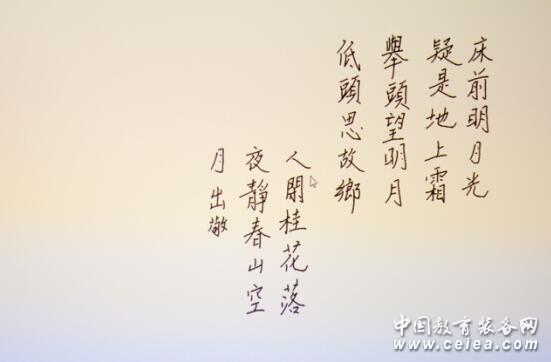 床前明月光
疑是地上霜
舉頭望明月
低頭思故鄉
人閒桂花落
夜靜春山空
月出敬
中国教育装备网
www.ceiea.com